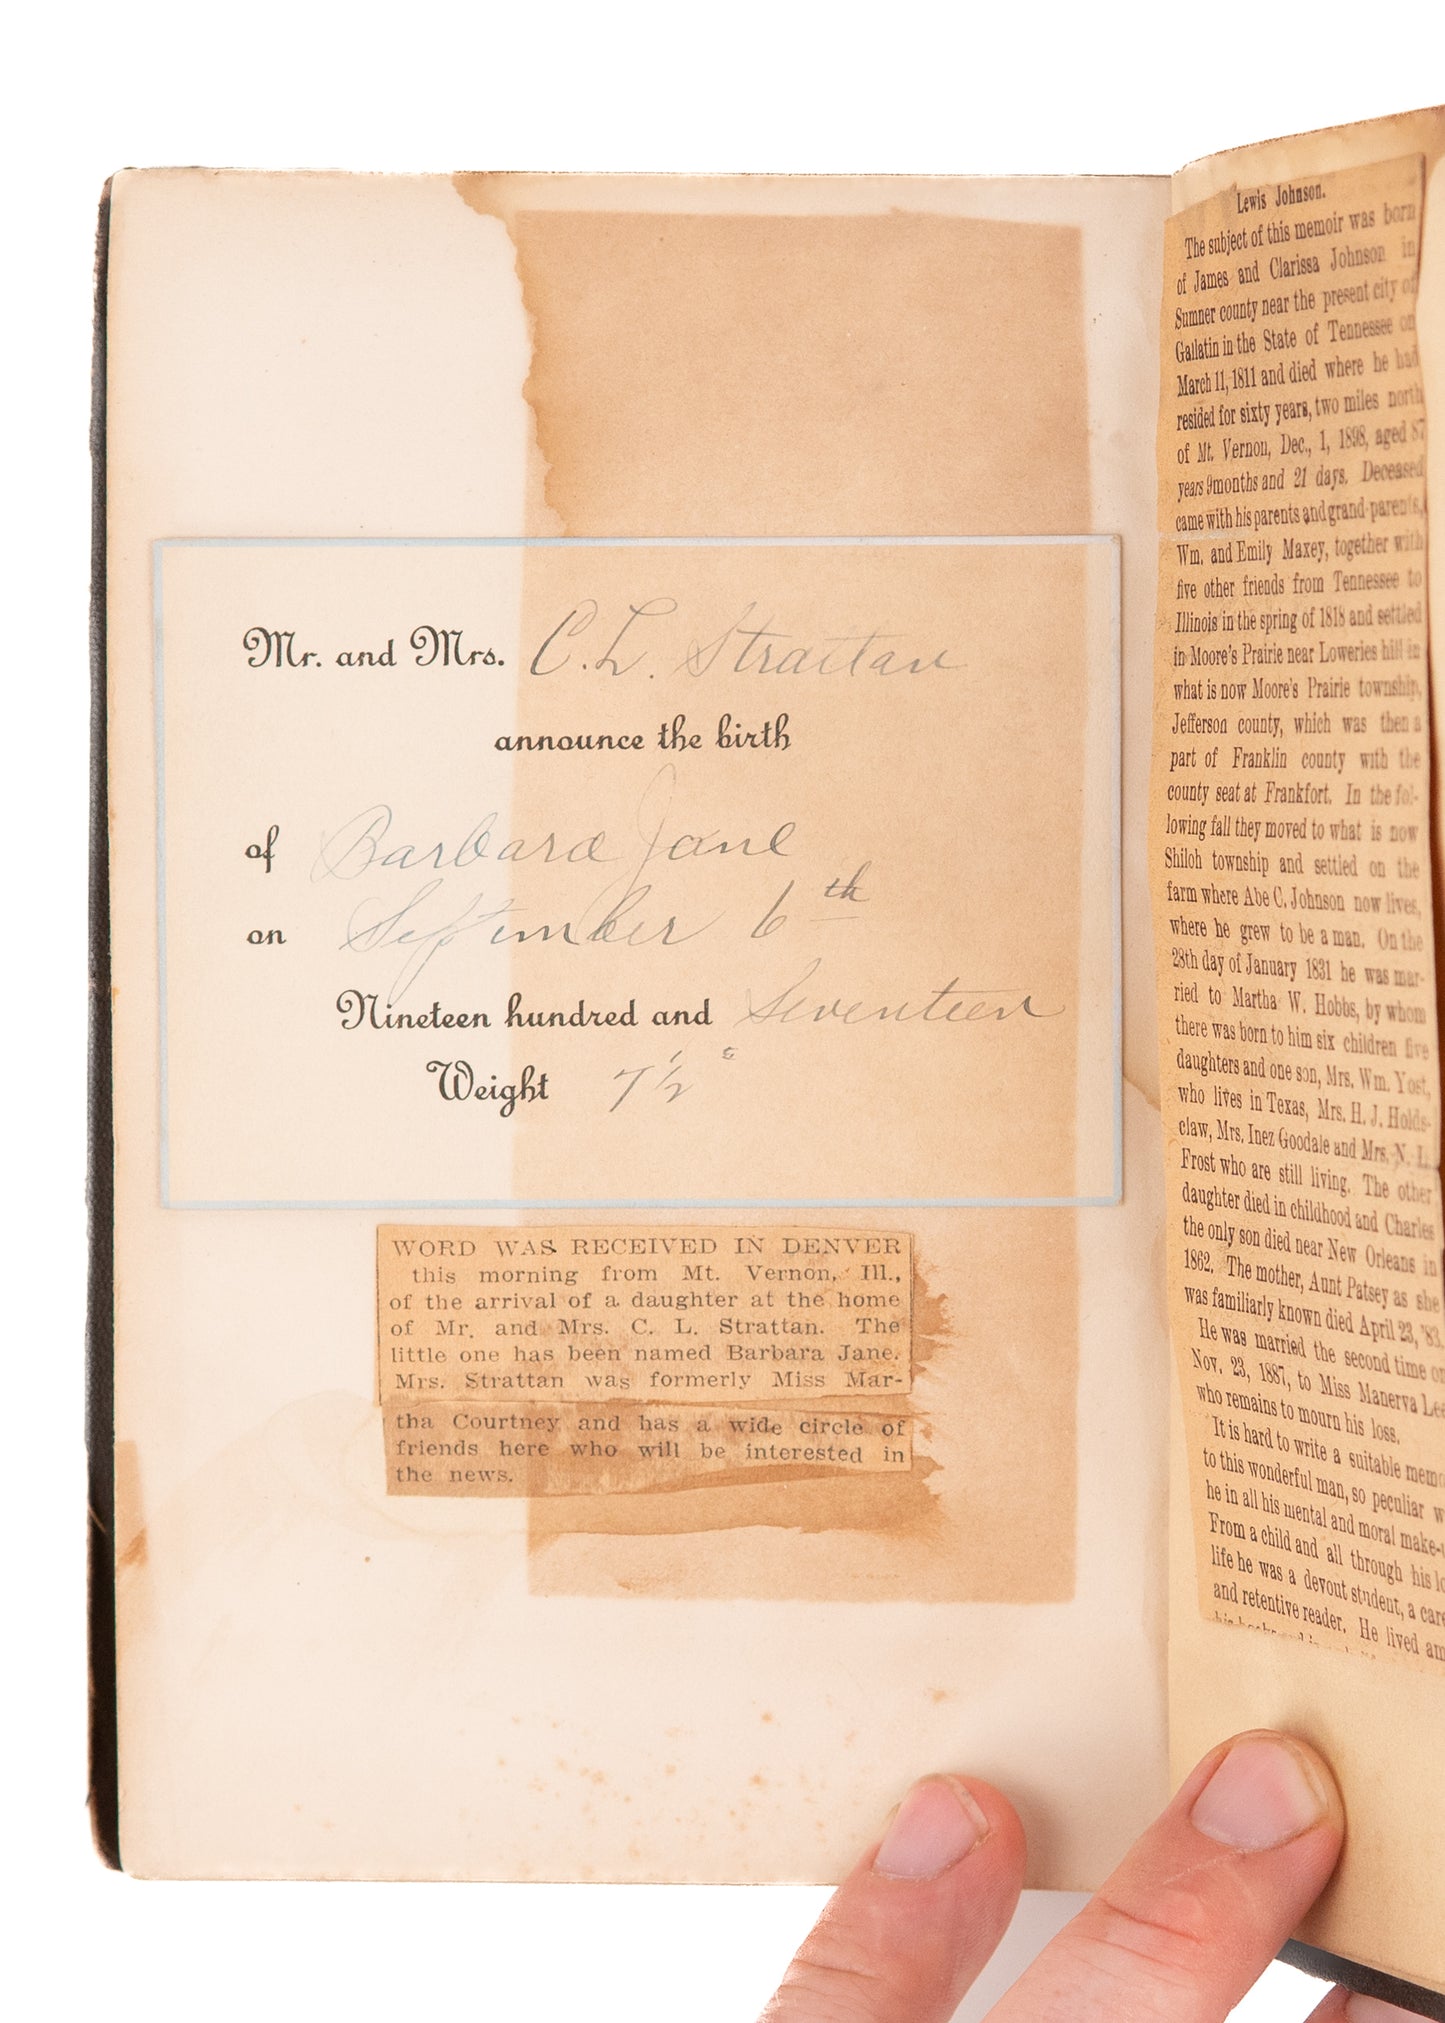 Mr. and Mrs. C. L. Strattan
announce the birth
of Barbara Jane
on September 6th
Nineteen hundred and Seventeen
Weight 7 1/2
WORD WAS RECEIVED IN DENVER
this morning from Mt. Vernon, Ill.,
of the arrival of a daughter at the home
of Mr. and Mrs. C. L. Strattan. The
little one has been named Barbara Jane.
Mrs. Strattan was formerly Miss Mar-
tha Courtney and has a wide circle of
friends here who will be interested in
the news.
Lewis Johnson.
The subject of this memoir was born
of James and Clarissa Johnson in
Sumner county near the present city of
Gallatin in the State of Tennessee on
March 11, 1811 and died where he had
resided for sixty years, two miles north
of Mt. Vernon, Dec., 1, 1898, aged 87
years 9months and 21 days. Deceased
came with his parents and grand-parents,
Wm. and Emily Maxey, together with
five other friends from Tennessee to
Illinois in the spring of 1818 and settled
in Moore's Prairie near Loweries hill in
what is now Moore's Prairie township,
Jefferson county, which was then a
part of Franklin county with the
county seat at Frankfort. In the fol-
lowing fall they moved to what is now
Shiloh township and settled on the
farm where Abe C. Johnson now lives,
where he grew to be a man. On the
28th day of January 1831 he was mar-
ried to Martha W. Hobbs, by whom
there was born to him six children five
daughters and one son, Mrs. Wm. Yost,
who lives in Texas, Mrs. H. J. Holds-
claw, Mrs. Inez Goodale and Mrs. N. L.
Frost who are still living. The other
daughter died in childhood and Charles
the only son died near New Orleans in
1862. The mother, Aunt Patsey as she
was familiarly known died April 23, '83.
He was married the second time on
Nov. 23, 1887, to Miss Manerva Lee
who remains to mourn his loss.
It is hard to write a suitable
to this wonderful man, so peculiar
he in all his mental and moral make-
From a child and all through his
life he was a devout student, a
and retentive reader. He lived